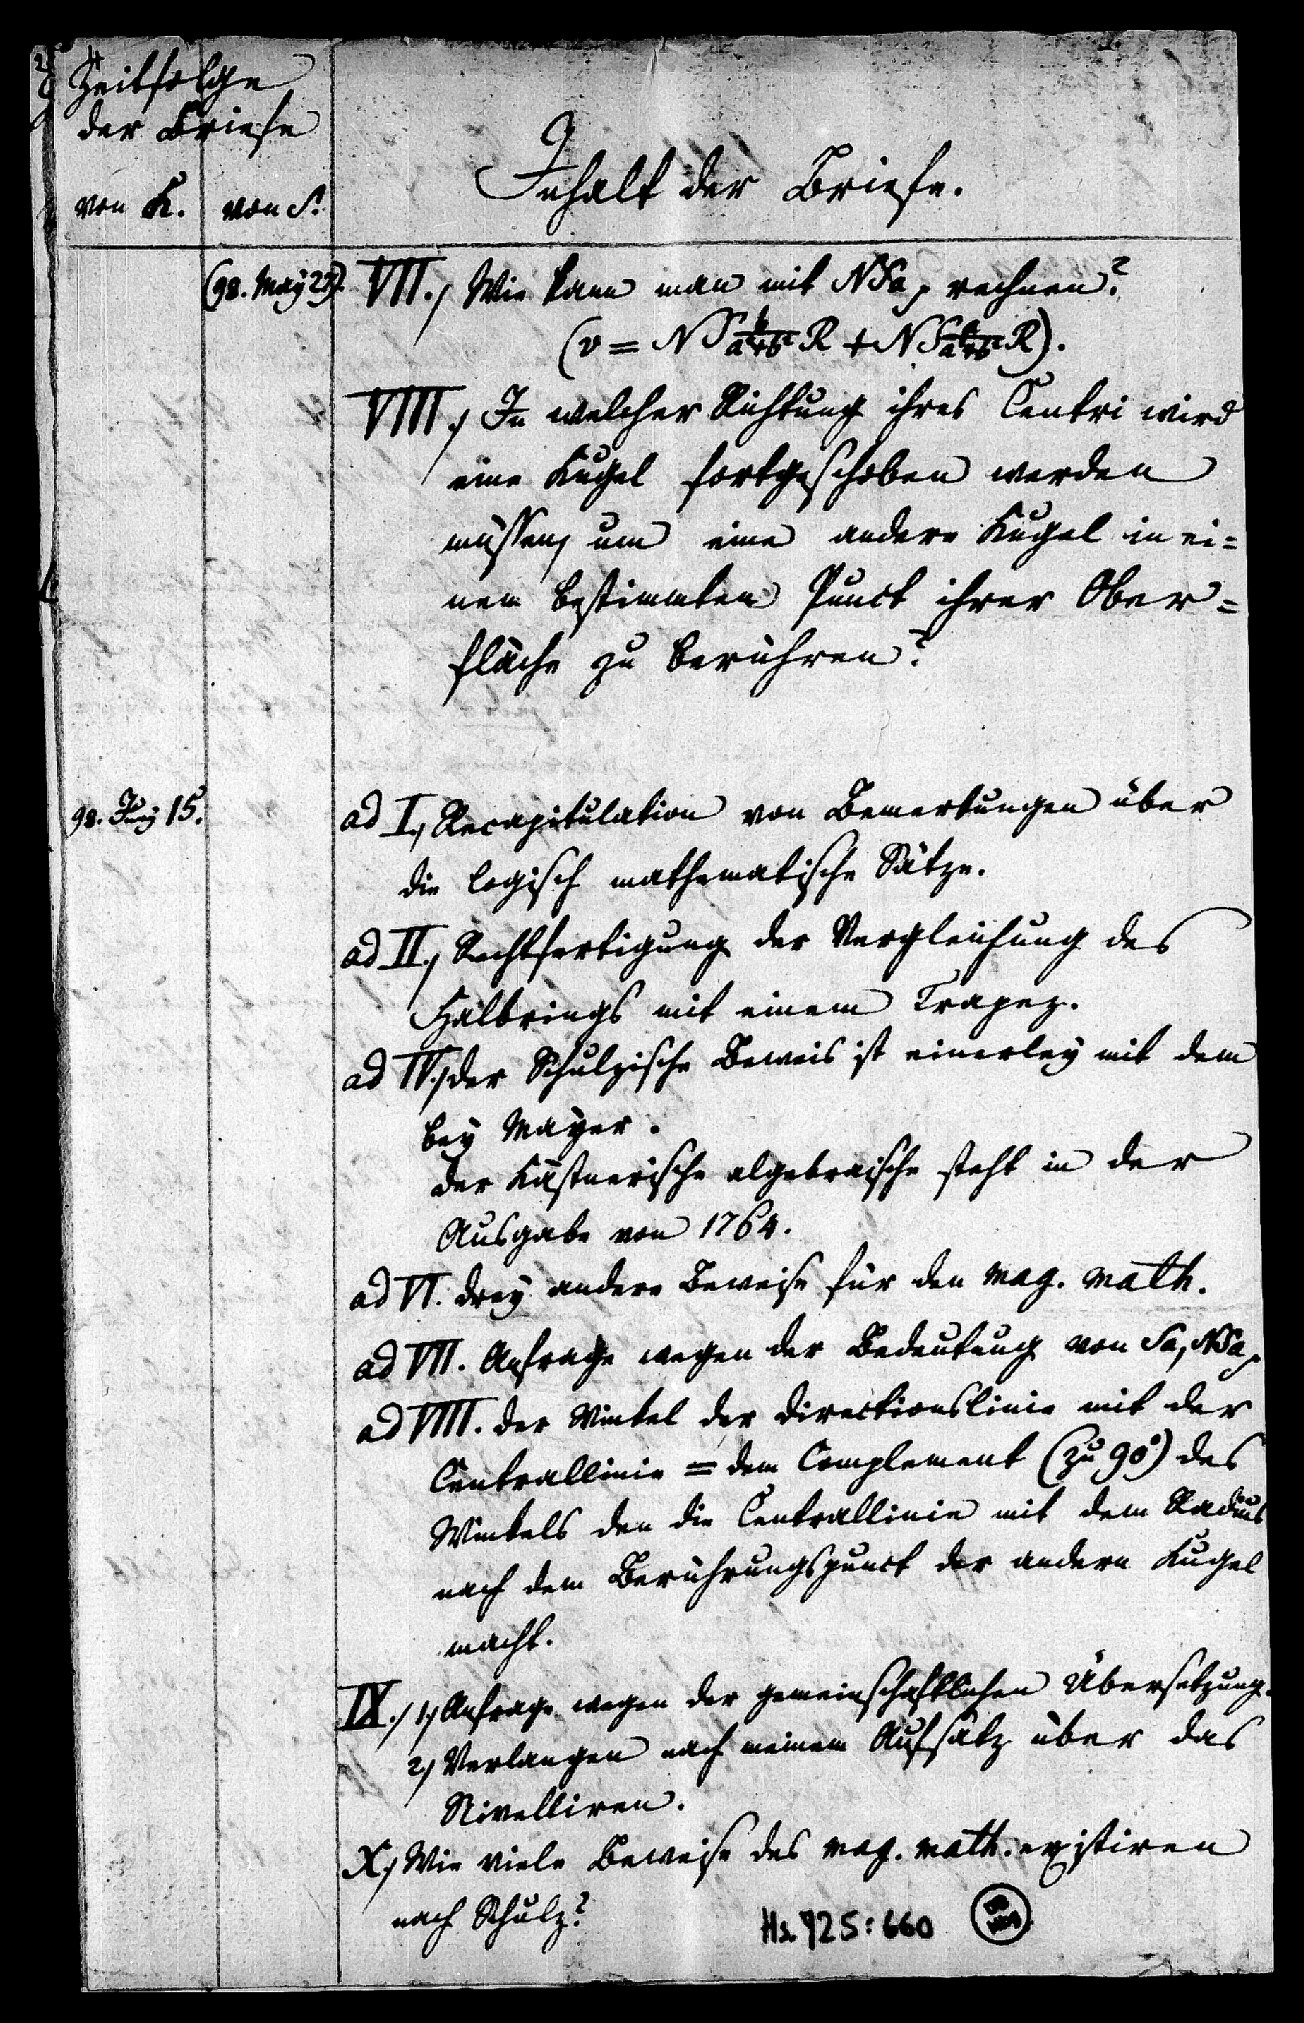 Zeitfolge
der Briefe
von K. von S.
Inhalt der Briefe.
(98. May 23). VII., Wie kann man mit NSa, rechnen?
(v = NS R + NS R).
VIII., In welcher Richtung ihres Centri wird
eine Kugel fortgeschoben werden
müssen, um eine andere Kugel in ei=
nem bestimmten Punct ihrer Ober=
fläche zu berühren?
98. Juny 15. ad I., Recapitulation von Bemerkungen über
die logisch mathematische Sätze.
ad II., Rechtfertigung der Vergleichung des
Halbrings mit einem Trapez.
ad IV., der Schulzische Beweis ist einerley mit dem
bey Mayer.
der Kästnerische algebraische steht in der
Ausgabe von 1764.
ad VI. drey andere Beweise für den Mag. Math.
ad VII. Anfrage wegen der Bedeutung von Sa, NSa,
ad VIII. der Winkel der Directionslinie mit der
Centrallinie = dem Complement (zu 90°) des
Winkels den die Centrallinie mit dem Radius
nach dem Berührungspunct der andern Kugel
macht.
IX., 1, Anfrage wegen der gemeinschaftlichen Übersetzung.
2, Verlangen nach meinem Aufsatz über das
Nivelliren.
X, Wie viele Beweise des Mag. Math. existiren
nach Schulz?
Hs. 925:660